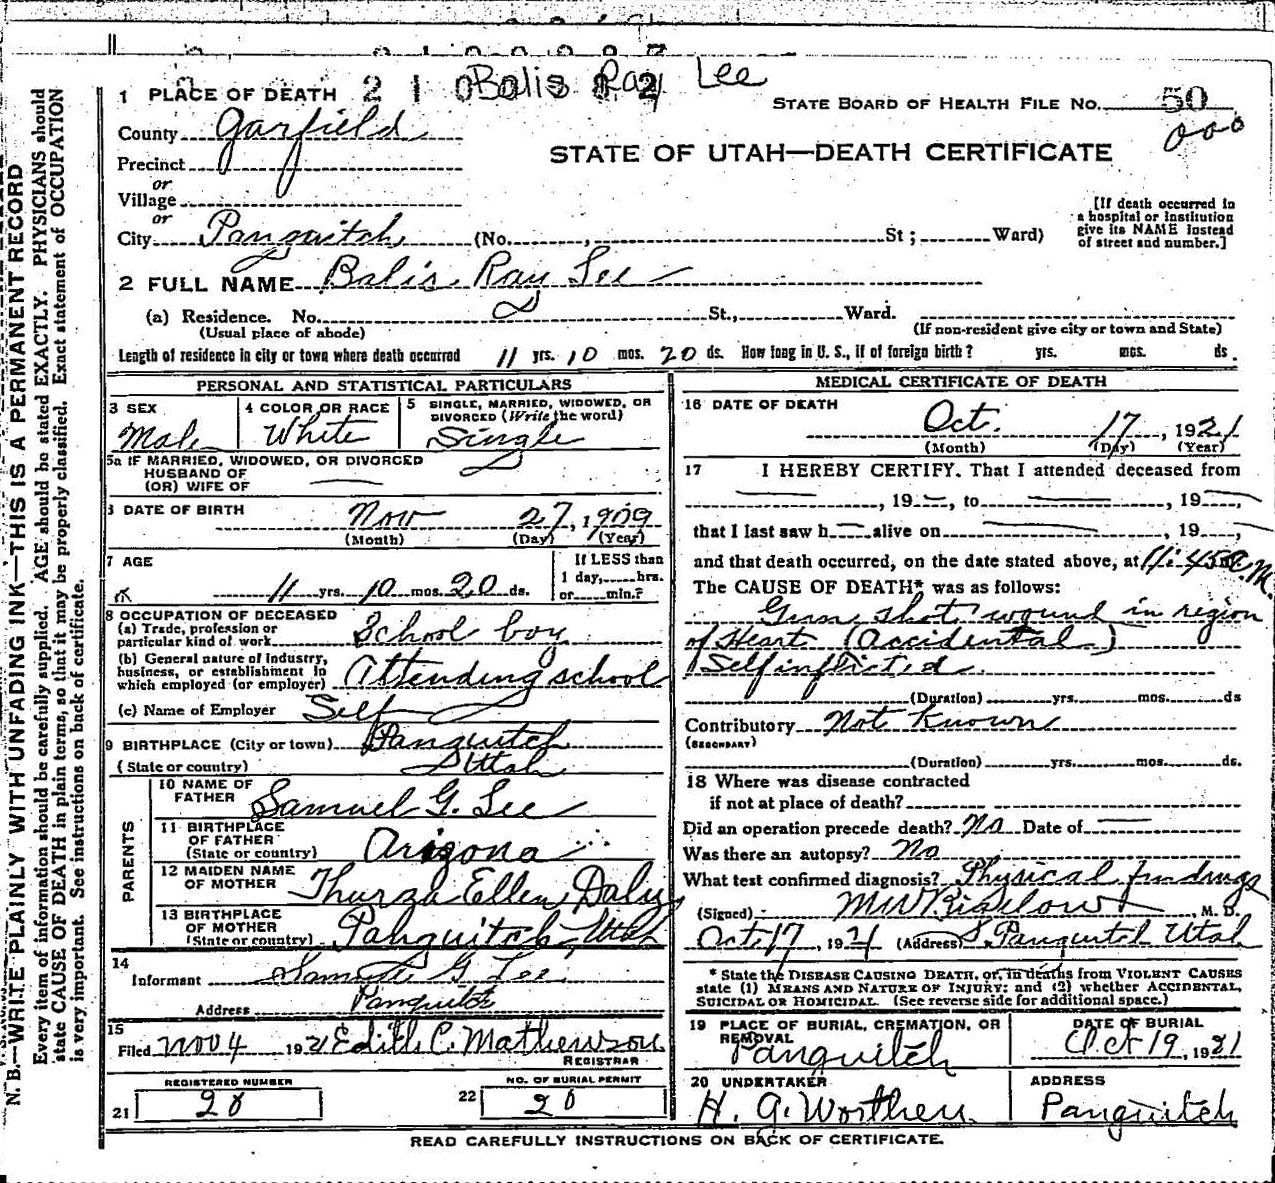 Balis Ray Lee
1 PLACE OF DEATH
STATE BOARD OF HEALTH FILE NO. 50
County Garfield
STATE OF UTAH—DEATH CERTIFICATE
Precinct
or
Village
or
City Panguitch (No. , St; Ward)
[If death occurred in
a hospital or institution
give its NAME instead
of street and number.]
2 FULL NAME Balis Ray Lee
(a) Residence. No. St., Ward.
(Usual place of abode) (If non-resident give city or town and State)
Length of residence in city or town where death occurred 11 yrs. 10 mos. 20 ds. How long in U. S., if of foreign birth? yrs. mos. ds.
PERSONAL AND STATISTICAL PARTICULARS
3 SEX Male
4 COLOR OR RACE White
5 SINGLE, MARRIED, WIDOWED, OR
DIVORCED (Write the word)
Single
5a IF MARRIED, WIDOWED, OR DIVORCED
HUSBAND OF
(OR) WIFE OF
DATE OF BIRTH Nov 27, 1909
(Month) (Day) (Year)
7 AGE
11 yrs. 10 mos. 20 ds.
If LESS than
1 day, hrs.
or min.?
8 OCCUPATION OF DECEASED
(a) Trade, profession or
particular kind of work School boy
(b) General nature of industry,
business, or establishment in
which employed (or employer) Attending school
(c) Name of Employer Self
9 BIRTHPLACE (City or town) Panguitch
(State or country) Utah
PARENTS
10 NAME OF
FATHER Samuel G. Lee
11 BIRTHPLACE
OF FATHER
(State or country) Arizona
12 MAIDEN NAME
OF MOTHER Thurza Ellen Daly
13 BIRTHPLACE
OF MOTHER
(State or country) Panguitch Utah
14
Informant Samuel G. Lee
Address Panguitch
15
Filed Nov 4 1921 Edith C. Mathewson
REGISTRAR
REGISTERED NUMBER
21 20
NO. OF BURIAL PERMIT
22 20
MEDICAL CERTIFICATE OF DEATH
16 DATE OF DEATH
Oct. 17, 1921
(Month) (Day) (Year)
17 I HEREBY CERTIFY, That I attended deceased from
, 19 , to , 19
that I last saw h alive on , 19 ,
and that death occurred, on the date stated above, at 11:45 a.M.
The CAUSE OF DEATH* was as follows:
Gun shot wound in region
of Heart (Accidental)
Self inflicted
(Duration) yrs. mos. ds
Contributory Not Known
(SECONDARY)
(Duration) yrs. mos. ds.
18 Where was disease contracted
if not at place of death?
Did an operation precede death? No Date of
Was there an autopsy? No
What test confirmed diagnosis? Physical findings
(Signed) M W Bigelow M. D.
Oct 17, 1921 (Address) Panguitch Utah
* State the DISEASE CAUSING DEATH, or, in deaths from VIOLENT CAUSES
state (1) MEANS AND NATURE OF INJURY: and (2) whether ACCIDENTAL,
SUICIDAL OR HOMICIDAL. (See reverse side for additional space.)
19 PLACE OF BURIAL, CREMATION, OR
REMOVAL
Panguitch
DATE OF BURIAL
Oct 19, 1921
20 UNDERTAKER
H. G. Worthen
ADDRESS
Panguitch
READ CAREFULLY INSTRUCTIONS ON BACK OF CERTIFICATE.
N. B.—WRITE PLAINLY WITH UNFADING INK—THIS IS A PERMANENT RECORD
Every item of information should be carefully supplied. AGE should be stated EXACTLY. PHYSICIANS should
state CAUSE OF DEATH in plain terms, so that it may be properly classified. Exact statement of OCCUPATION
is very important. See instructions on back of certificate.